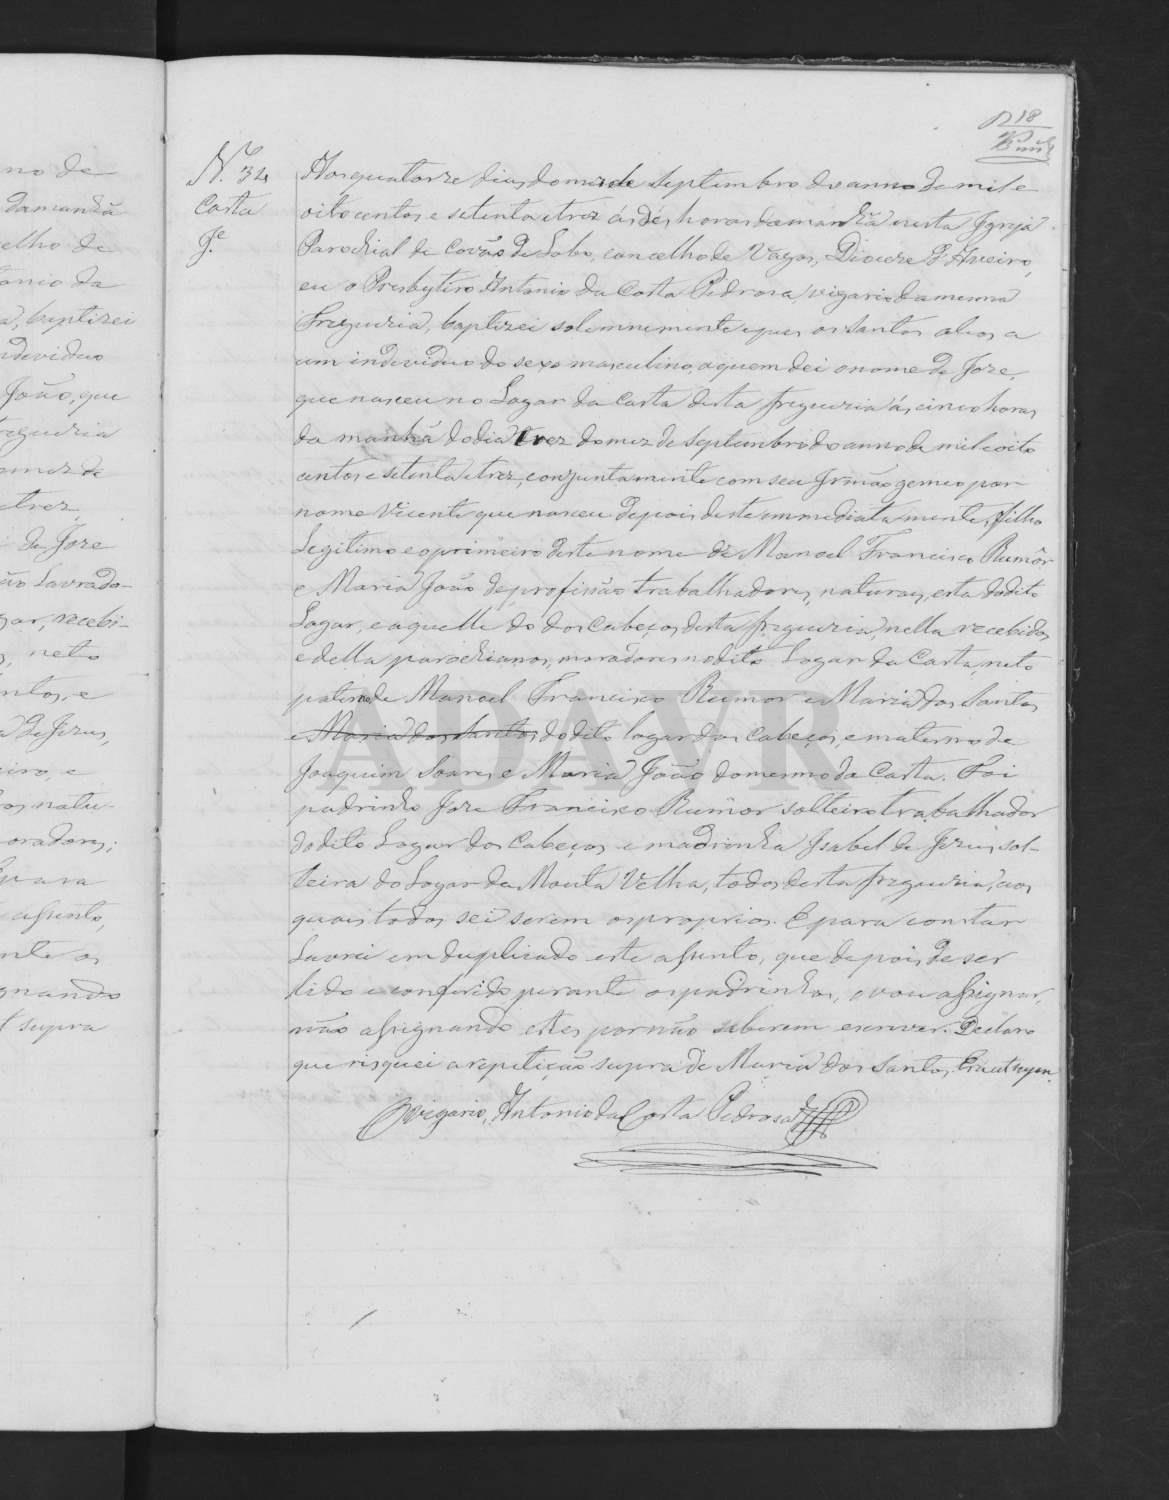 18
N.º 34
Costa
J.e
Aos quatorze dias do mez de Septembro do anno de mil e
oito centos e setenta e trez ás dés horas da manhã nesta Igreja
Parochial de Covão de Lobo, concelho de Vagos, Diocese d'Aveiro,
eu o Presbytero Antonio da Costa Pedrosa, vigario da mesma
Freguezia, baptizei solemnemente e puz os santos oleos a
um individuo do sexo masculino, a quem dei o nome de Joze,
que nasceu no Logar da Costa desta freguezia ás cinco horas
da manhã do dia trez do mez de Septembro do anno de mil e oito
centos e setenta e trez, conjuntamente com seu Irmão gemeo por
nome Vicente que nasceu depois deste immediatamente, filho
Legitimo e o primeiro deste nome de Manoel Francisco Rumôr
e Maria João de profissão trabalhadores, naturaes, esta do dito
Logar, e aquelle do dos Cabeços desta freguezia, nella recebidos
e della parochianos, moradores no dito Logar da Costa, neto
paterno de Manoel Francisco Rumor e Maria dos Santos
e Maria dos Santos do dito logar dos Cabeços, e materno de
Joaquim Soares e Maria João do mesmo da Costa. Foi
padrinho Joze Francisco Rumôr solteiro trabalhador
do dito Logar dos Cabeços e madrinha Isabel de Jezus, sol-
teira do Logar da Mouta Velha, todos desta freguezia, aos
quais todos sei serem os proprios. E para constar
Lavrei em duplicado este assento, que depois de ser
lido e conferido perante os padrinhos, o vou assignar,
não assignando estes por não saberem escrever. Declaro
que risquei a repetição supra de Maria dos Santos. Era ut supra.
O vigario, Antonio da Costa Pedrosa
no de
da manhã
celho de
tonio da
a, baptizei
ndividuo
João, que
reguezia
mez de
trez
de Joze
Lavrado-
gar, recebi-
neto
ntos, e
de Jezus,
eiro, e
natu-
oradores;
para
assento,
nte os
gnando
t supra
ADAVR